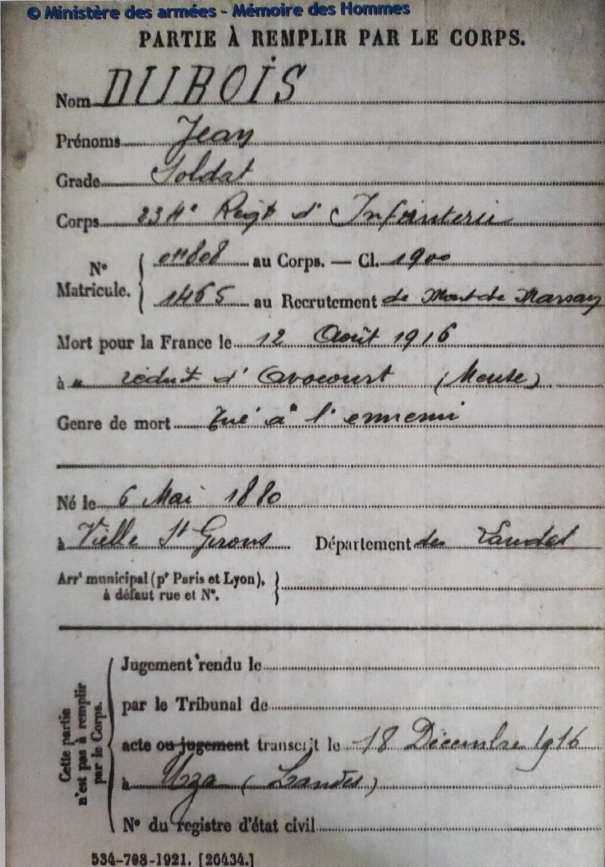 © Ministère des armées - Mémoire des Hommes
PARTIE À REMPLIR PAR LE CORPS.
Nom DUBOIS
Prénoms Jean
Grade Soldat
Corps 234e Regt d'Infanterie
N° Matricule. 808 au Corps. — Cl. 1900
1465 au Recrutement de Mont de Marsan
Mort pour la France le 12 Août 1916
à réduit d'Avocourt (Meuse)
Genre de mort Tué à l'ennemi
Né le 6 Mai 1880
à Vielle St Girons Département des Landes
Arrt municipal (pr Paris et Lyon), à défaut rue et N°.
Cette partie n'est pas à remplir par le Corps.
Jugement rendu le
par le Tribunal de
acte ou jugement transcrit le 18 Décembre 1916
à Uza (Landes)
N° du registre d'état civil
534-708-1921. [26434.]